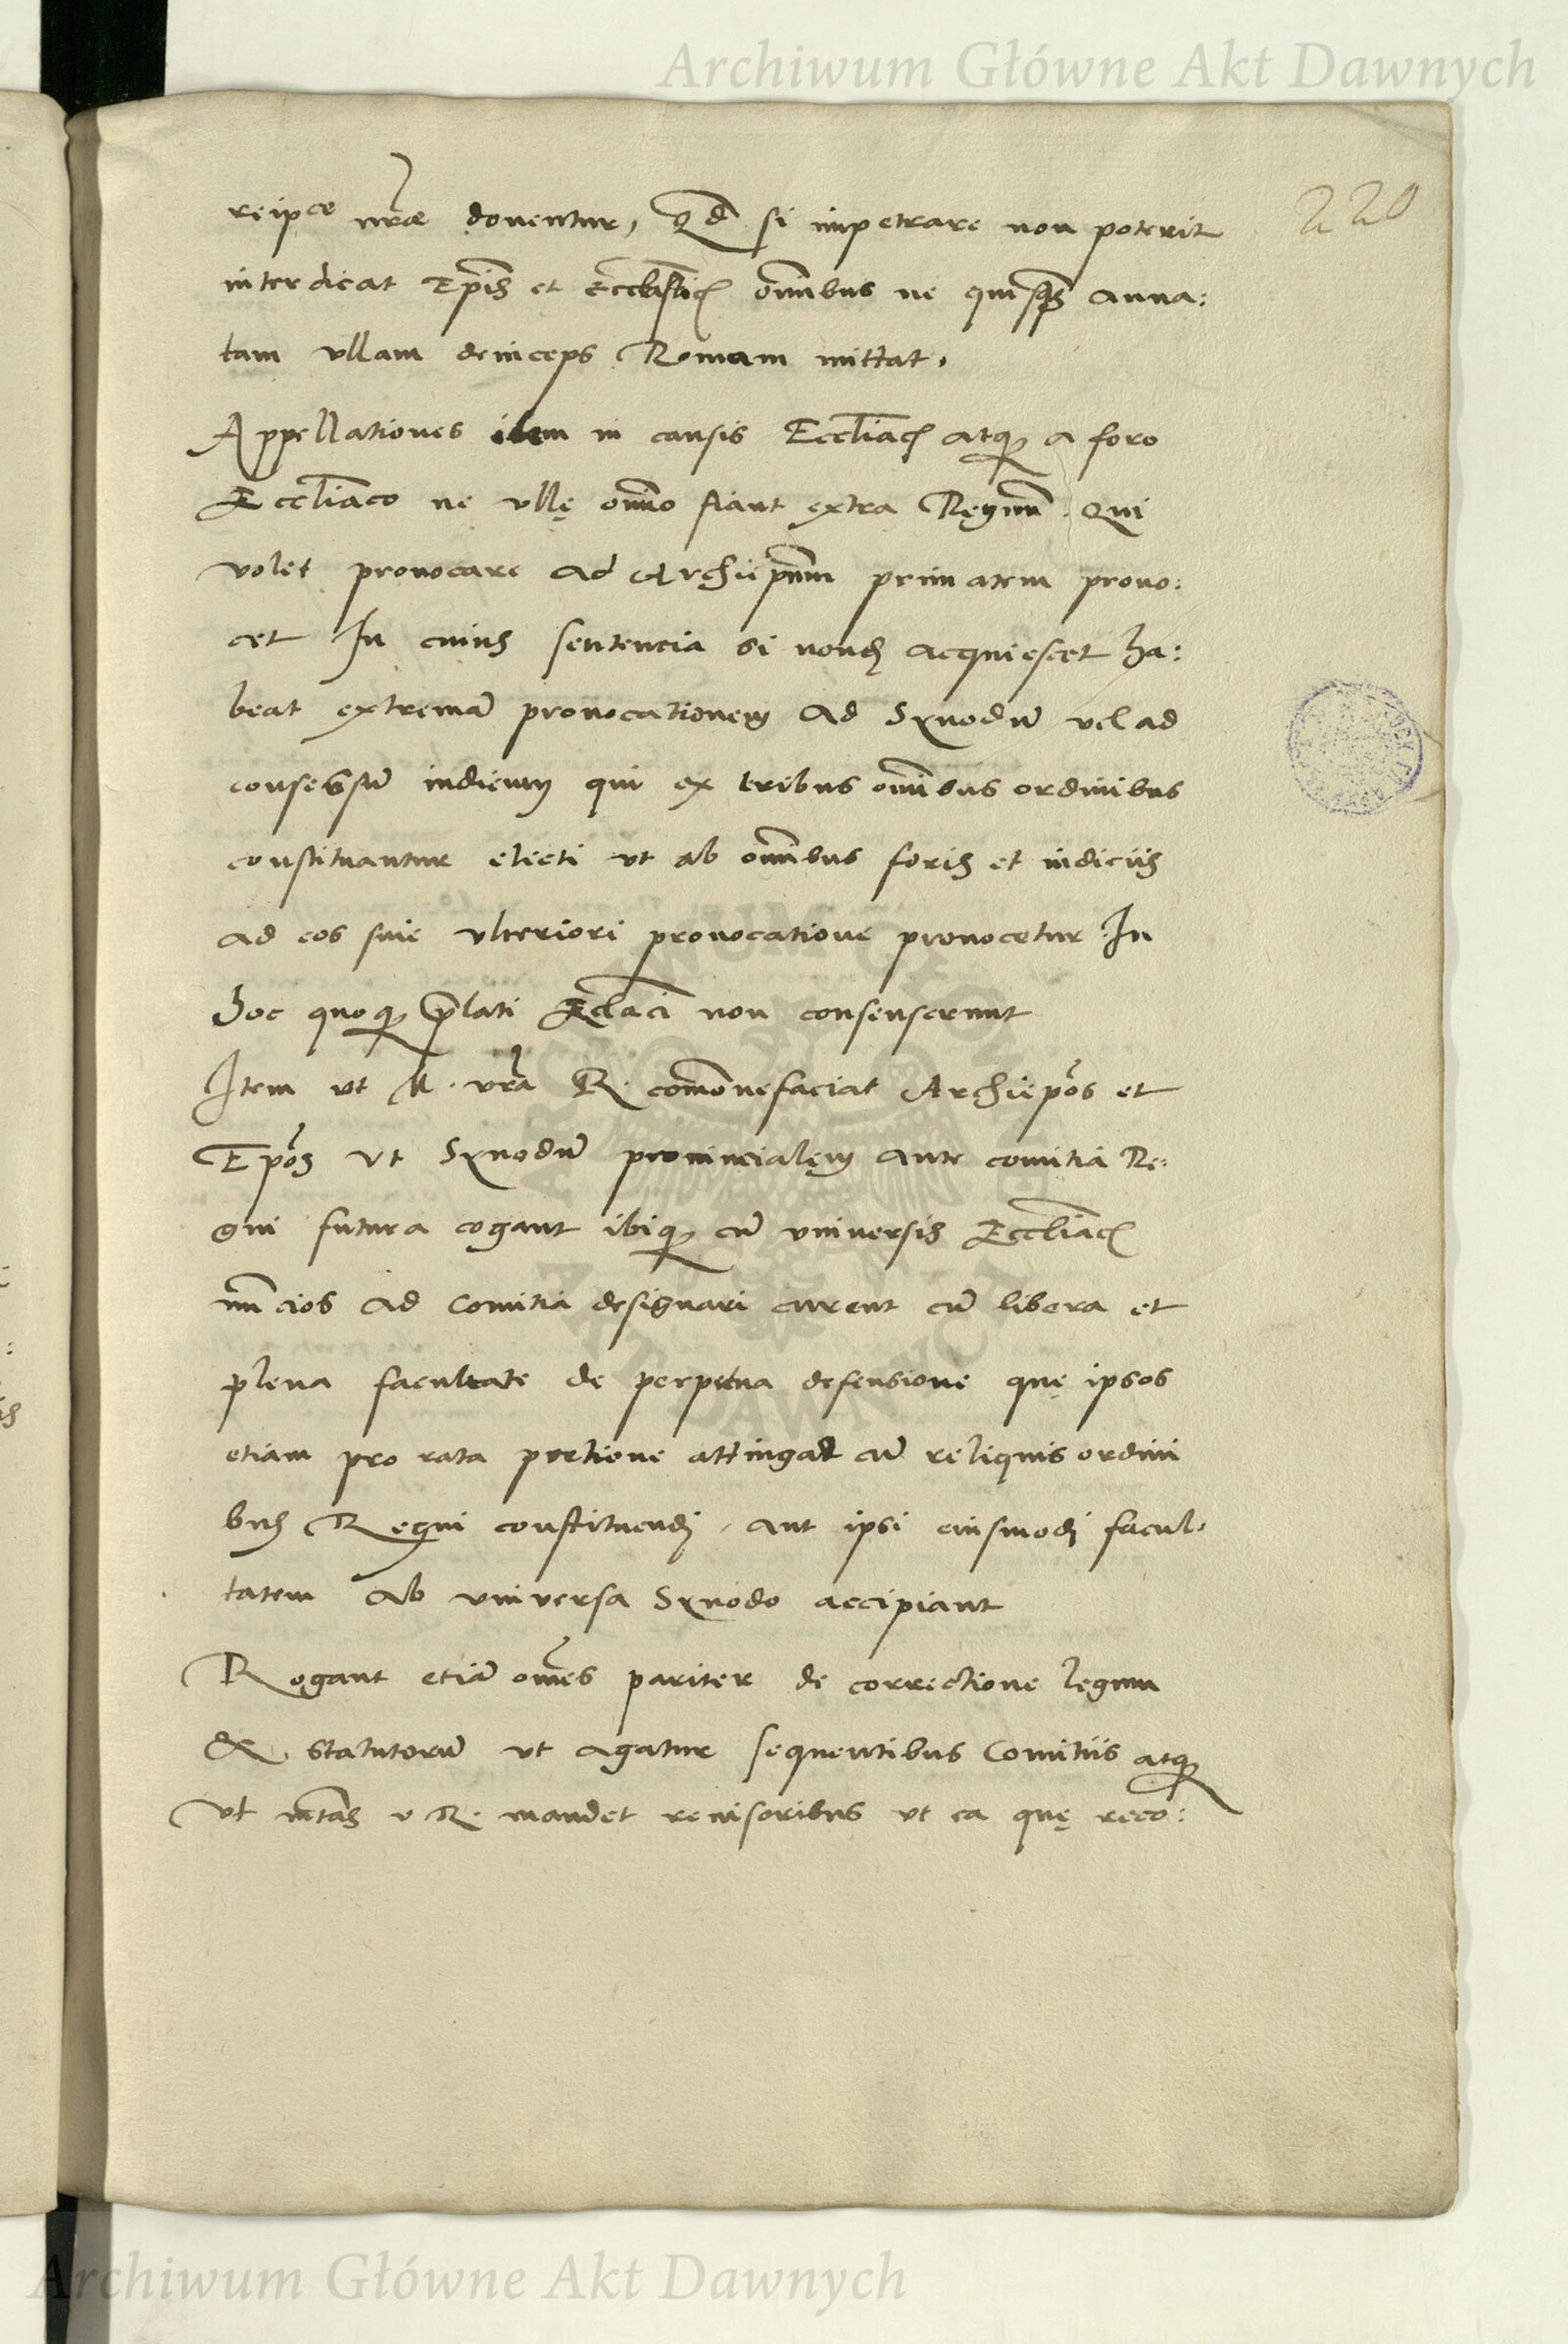 Archiwum Główne Akt Dawnych
220
reipce nrae donentur, Qd si impetrare non poterit
interdicat Epis et Ecclasticis omibus ne quisqs anna:
tam vllam deinceps Romam mittat.
Appellationes item in causis Eccliacis atq a foro
Eccliaco ne vllę omino fiant extra Regnum. Qui
volet prouocare ad Archiepum primatem prouo:
cet In cuius sententia si nondum acquiescet ha:
beat extremā prouocationem ad Synodū vel ad
consessū iudicum qui ex tribus omibus ordinibus
constituantur electi vt ab omibus foris et iudiciis
ad eos sine vlteriori prouocatione prouocetur In
hoc quoq prelati Eclaci non consenserunt
Item vt M. vra R. comonefaciat Archiepos et
Epos vt Synodū prouincialem ante comitia Re:
gni futura cogant ibiq cū vniuersis Eccliacis
nuncios ad comitia designari curent cū libera et
plena facultate de perpetua defensione quę ipsos
etiam pro rata portione attingat cū reliquis ordini
bus Regni constituendi, aut ipsi eiusmodi facul:
tatem ab vniuersa Synodo accipiant
Rogant etiā omes pariter de correctione legum
& statutorū vt agatur sequentibus Comitiis atq
vt mtas v R. mandet reuisoribus vt ea quę reco:
Archiwum Główne Akt Dawnych